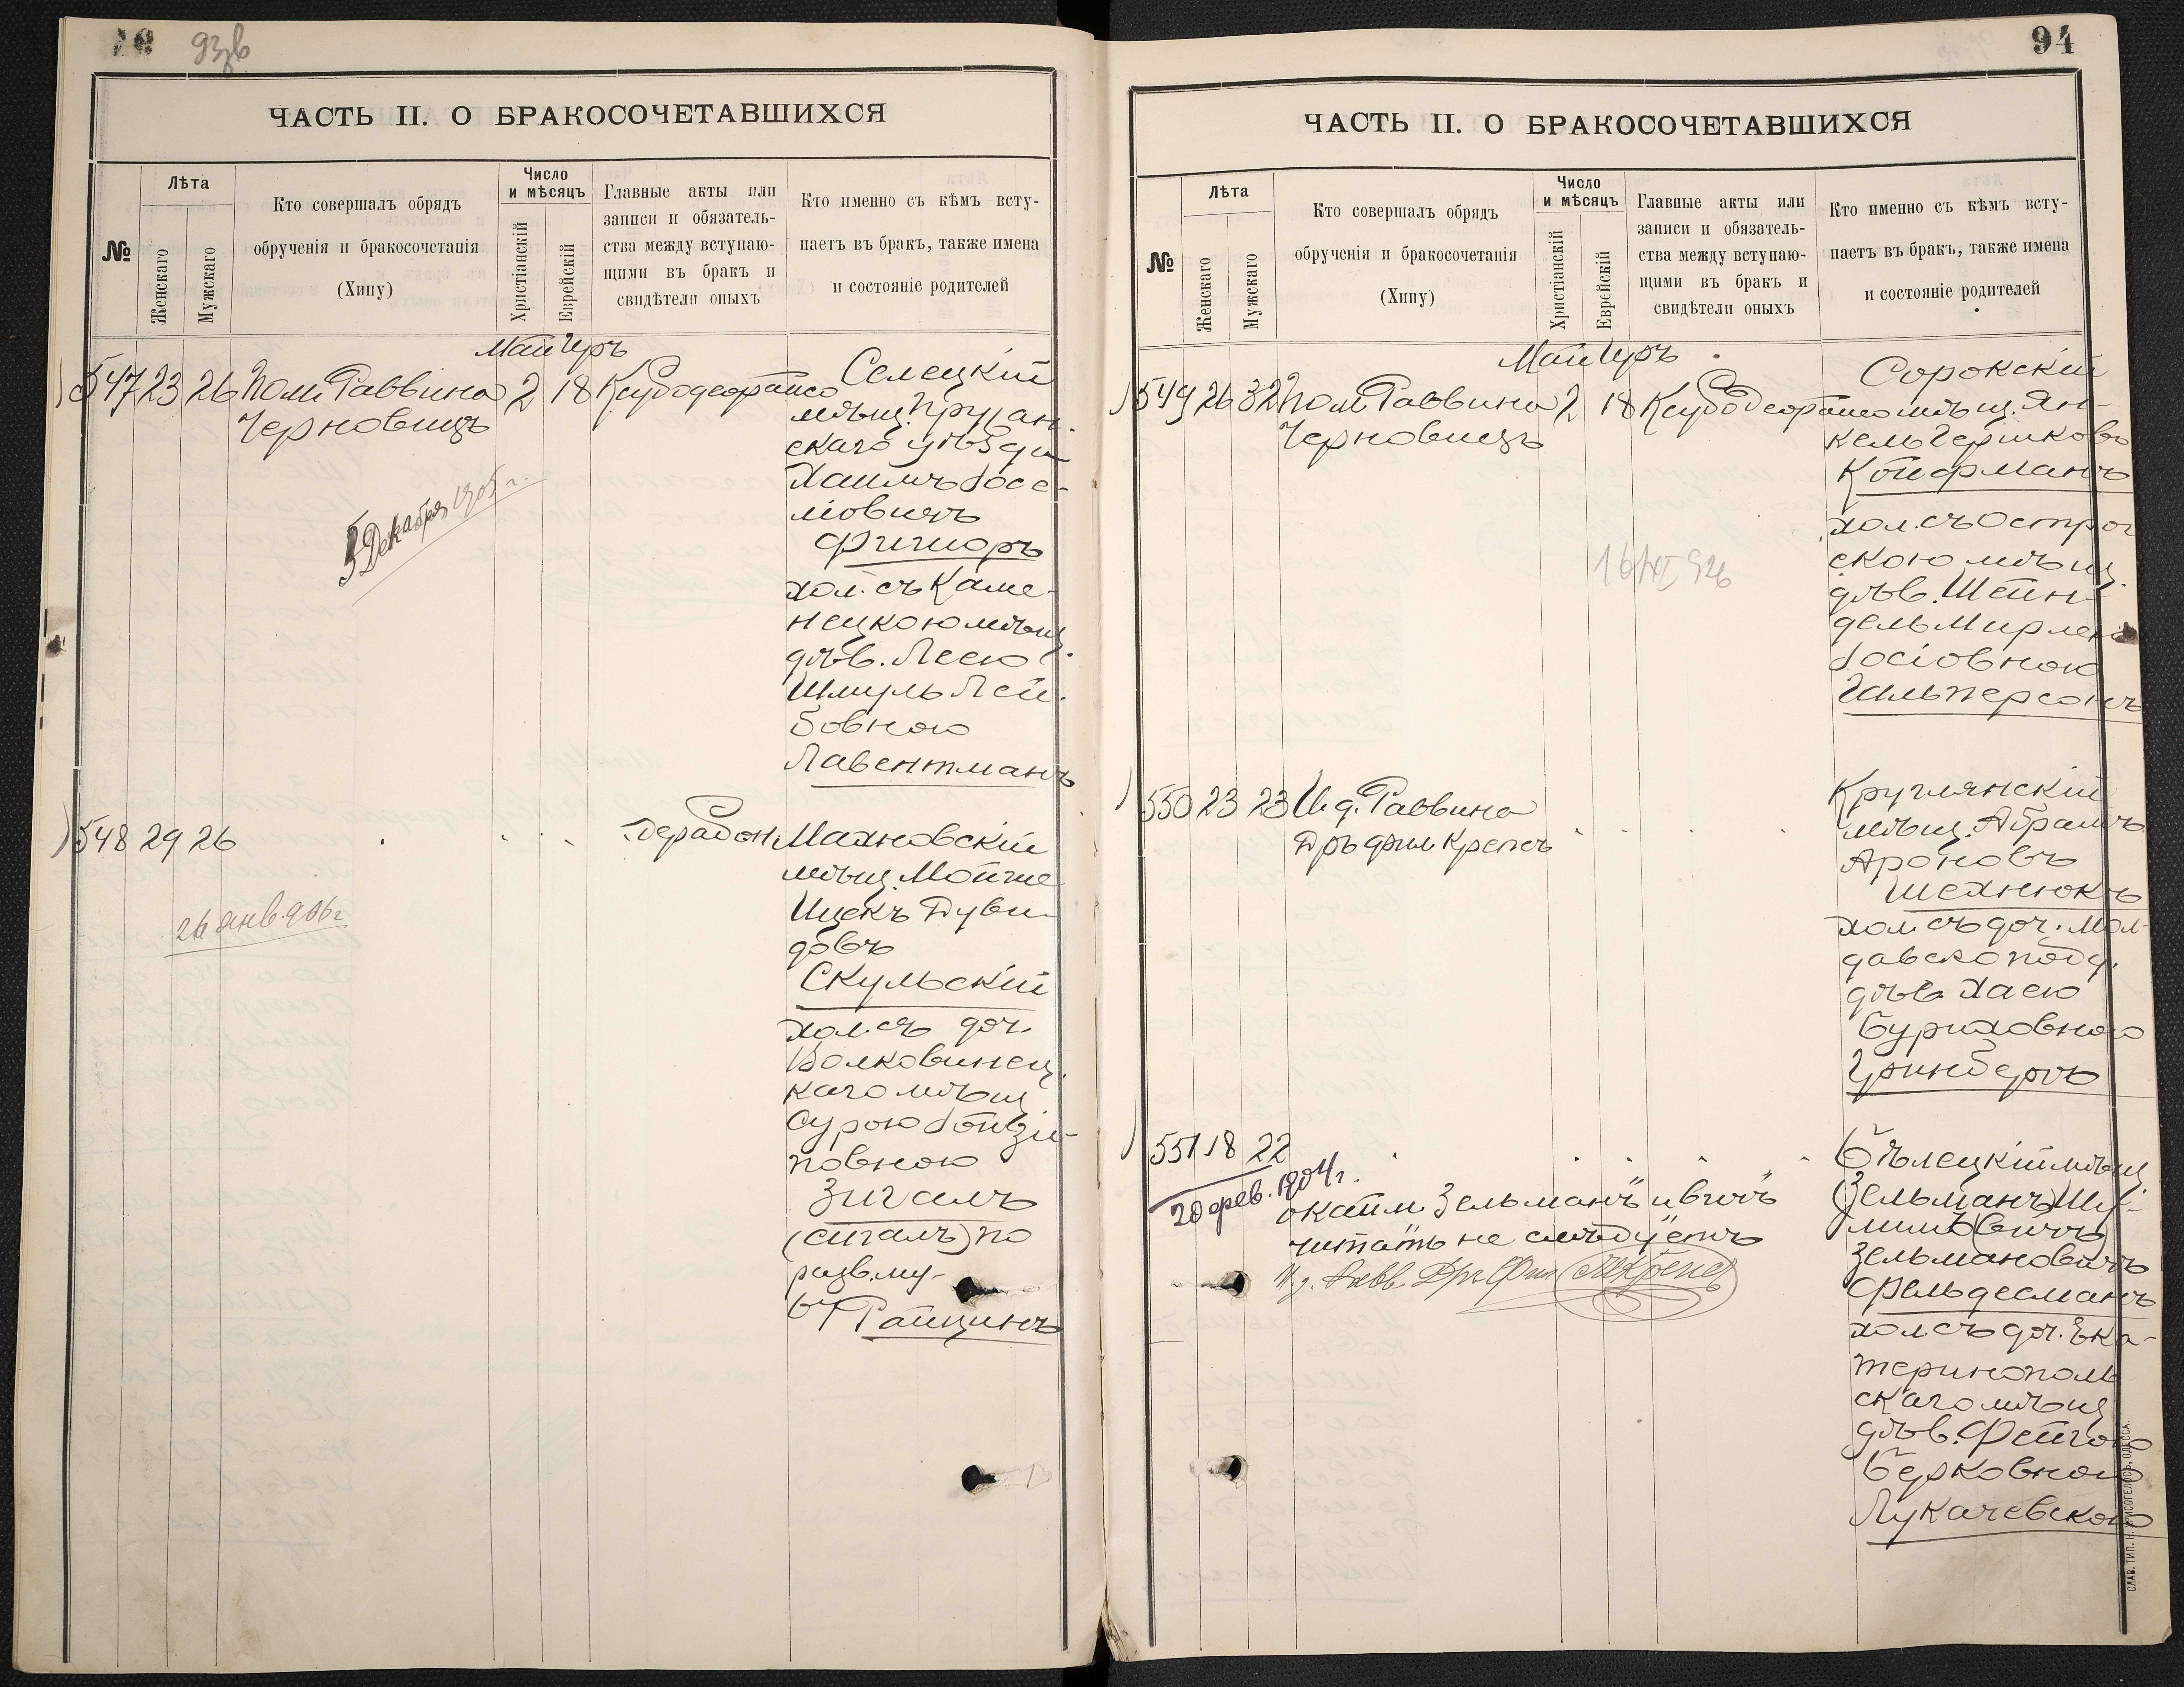 93в
ЧАСТЬ II. О БРАКОСОЧЕТАВШИХСЯ
№
Лѣта
Женскаго
Мужскаго
Кто совершалъ обрядъ
обрученія и бракосочетанія
(Хипу)
Число
и мѣсяцъ
Христіанскій
Еврейскій
Главные акты или
записи и обязатель-
ства между вступаю-
щими въ бракъ и
свидѣтели оныхъ
Кто именно съ кѣмъ всту-
паетъ въ бракъ, также имена
и состояніе родителей
Май Іуръ
547 23 26 Пом. Раввина 2 18
Черновицъ
5 Декабря 1905 г.
Селецкій
мѣщ. Пружан-
скаго уѣзда
Хаимъ Іосе-
ліовичъ
Фиглоръ
хол. съ Каме-
нецкою мѣщ.
дѣв. Леею
Шмуль Лей-
бовною
Лавентманъ
548 29 26
26 янв. 906 г
Махновскій
мѣщ. Мойше
Ицекъ Дуви-
довъ
Скульскій
хол. съ доч.
Волковинец.
каго мѣщ.
Сурою
повною
Зигалъ
(Сигалъ) по
разв. му-
жу Райцинъ
94
ЧАСТЬ II. О БРАКОСОЧЕТАВШИХСЯ
№
Лѣта
Женскаго
Мужскаго
Кто совершалъ обрядъ
обрученія и бракосочетанія
(Хипу)
Число
и мѣсяцъ
Христіанскій
Еврейскій
Главные акты или
записи и обязатель-
ства между вступаю-
щими въ бракъ и
свидѣтели оныхъ
Кто именно съ кѣмъ всту-
паетъ въ бракъ, также имена
и состояніе родителей
Май Іуръ
549 26 32 Пом. Раввина 2 18
Черновицъ
16/XI 926
Сорокскій
мѣщ. Ян-
кель Гершковъ
Койфманъ
хол. съ Острог
скою мѣщ.
дѣв. Шейн-
дель Мирлею
Іосіовною
Гальперсонъ
550 23 23 И. д. Раввина
Дръ фил Крепсъ
Круглянскій
мѣщ. Абрамъ
Ароновъ
Шехнюкъ
хол. съ доч. Мол-
давско подд.
дѣв. Хаею
Буриховною
Гринбергъ
551 18 22
20 фев. 1904 г.
Зельманъ и вичъ
читать не слѣдуетъ
И. д. Равв. Дръ Фил Крепсъ
Бѣлецкій мѣщ.
(Зельманъ) Шу-
лимъ (вичъ)
Зельмановичъ
Фельдесманъ
хол. съ доч. Ека-
теринополь
скаго мѣщ
дѣв. Фейгою
Берковною
Лукачевскою
СЛАВ. ТИП. Н. ХРИСОГЕЛОСЪ, ОДЕССА.